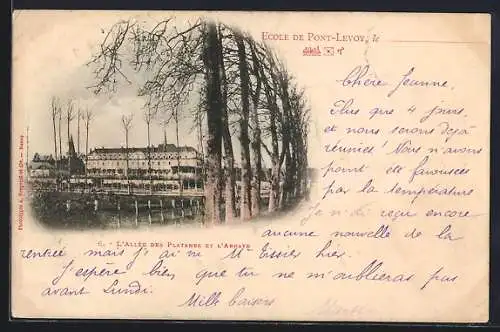 ECOLE DE PONT-LEVOY, le
Chère Jeanne,
Plus que 4 jours,
et nous serons déjà
réunies! Nous n'avons
point été favorisées
par la température
Je n'ai reçu encore
aucune nouvelle de la
6. - L'ALLÉE DES PLATANES ET L'ABBAYE
rentrée mais j'ai Mr Tissier hier.
J'espère bien que tu ne m'oublieras pas
avant Lundi. Mille baisers